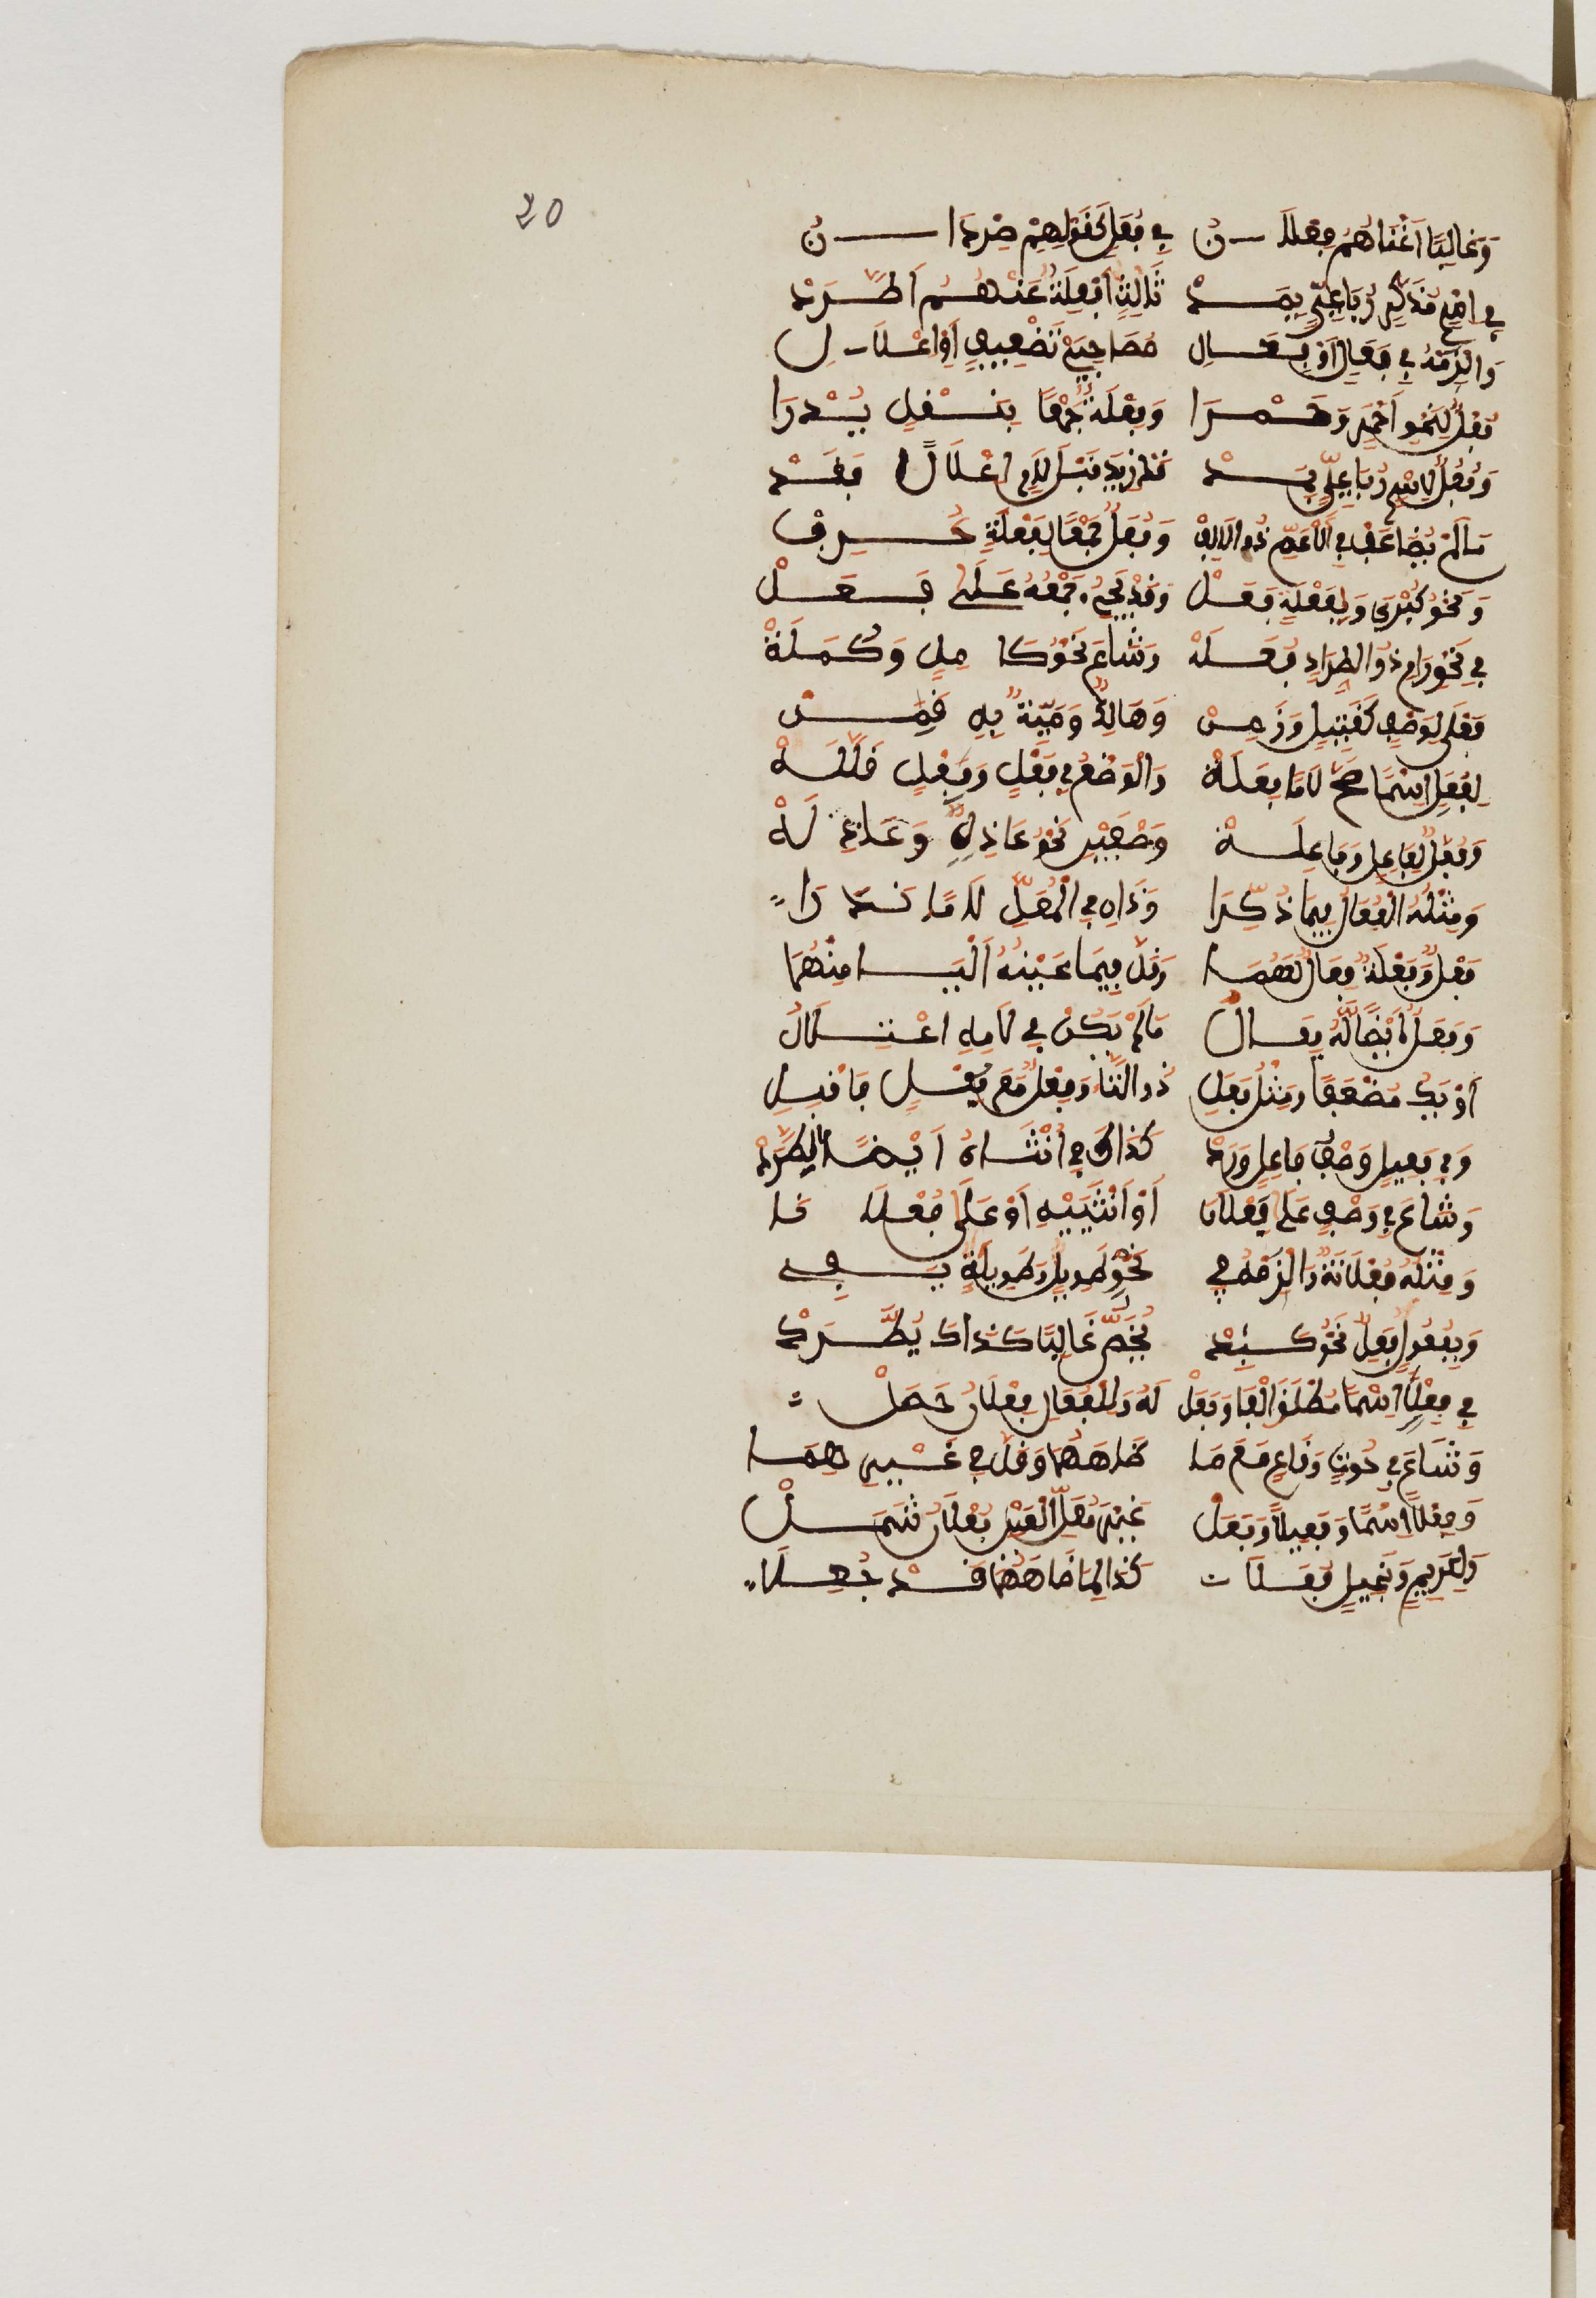 20
وَغَالِبًا اَغْنَاهُمُ فِعْلَانُ فِي فُعَلٍ كَقَوْلِهِمْ صِرْدَانُ
فِي اسْمٍ مُذَكَّرٍ رُبَاعِيٍّ بِمَدْ ثَالِثٍ اَفْعِلَةُ عَنْهُمُ اَطَّرَدْ
وَالْزَمْهُ فِي فَعَالٍ اَوْ فِعَالِ مُصَاحِبَيْ تَضْعِيفٍ اَوْ اِعْلَالِ
فُعْلٌ لِنَحْوِ اَحْمَرٍ وَحَمْرَا وَفِعْلَةٌ جَمْعًا بِنَقْلٍ يُدْرَا
وَفُعُلٌ لِاسْمٍ رُبَاعِيٍّ بِمَدْ قَدْ زِيدَ قَبْلَ لَامٍ اِعْلَالًا فَقَدْ
مَا لَمْ يُضَاعَفْ فِي الْاَعَمِّ ذُو الْاَلِفْ وَفُعَلٌ جَمْعًا لِفُعْلَةٍ عُرِفْ
وَنَحْوِ كُبْرَى وَلِفِعْلَةٍ فِعَلْ وَقَدْ يَجِيءُ جَمْعُهُ عَلَى فُعَلْ
فِي نَحْوِ رَامٍ ذُو اطِّرَادٍ فُعَلَهْ وَشَاعَ نَحْوُ كَامِلٍ وَكَمَلَهْ
فَعْلَى لِوَصْفٍ كَقَتِيلٍ وَزَمِنْ وَهَالِكٌ وَمَيِّتٌ بِهِ قَمِنْ
لِفُعْلٍ اسْمًا صَحَّ لَامًا فِعَلَهْ وَالْوَضْعُ فِي فَعْلٍ وَفِعْلٍ قَلَّلَهْ
وَفُعَّلٌ لِفَاعِلٍ وَفَاعِلَهْ وَصْفَيْنِ نَحْوُ عَاذِلٍ وَعَاذِلَهْ
وَمِثْلُهُ الْفُعَّالُ فِيمَا ذُكِّرَا وَذَانِ فِي الْمُعَلِّ لَامًا نَدَرَا
فَعْلٌ وَفَعْلَةٌ فِعَالٌ لَهُمَا وَقَلَّ فِيمَا عَيْنُهُ الْيَا مِنْهُمَا
وَفَعَلٌ اَيْضًا لَهُ فِعَالُ مَا لَمْ يَكُنْ فِي لَامِهِ اعْتِلَالُ
اَوْ يَكُ مُضْعَفًا وَمِثْلُ فَعَلِ ذُو التَّا وَفِعْلٌ مَعَ فُعْلٍ فَاقْبَلِ
وَفِي فَعِيلٍ وَصْفِ فَاعِلٍ وَرَدْ كَذَاكَ فِي اُنْثَاهُ اَيْضًا اطَّرَدْ
وَشَاعَ فِي وَصْفٍ عَلَى فَعْلَانَا اَوْ اُنْثَيَيْهِ اَوْ عَلَى فُعْلَانَا
وَمِثْلُهُ فُعْلَانَةٌ وَالْزَمْهُ فِي نَحْوِ طَوِيلٍ وَطَوِيلَةٍ تَفِي
وَبِفُعُولٍ فَعِلٌ نَحْوُ كَبِدْ يُخَصُّ غَالِبًا كَذَاكَ يَطَّرِدْ
فِي فَعْلٍ اسْمًا مُطْلَقَ الْفَا وَفَعَلْ لَهُ وَلِلْفُعَالِ فِعْلَانُ حَصَلْ
وَشَاعَ فِي حُوتٍ وَقَاعٍ مَعَ مَا ضَاهَاهُمَا وَقَلَّ فِي غَيْرِهِمَا
وَفَعْلًا اسْمًا وَفَعِيلًا وَفَعَلْ غَيْرَ مُعَلِّ الْعَيْنِ فُعْلَانُ شَمَلْ
وَلِكَرِيمٍ وَبَخِيلٍ فُعَلَا كَذَا لِمَا ضَاهَاهُمَا قَدْ جُعِلَا